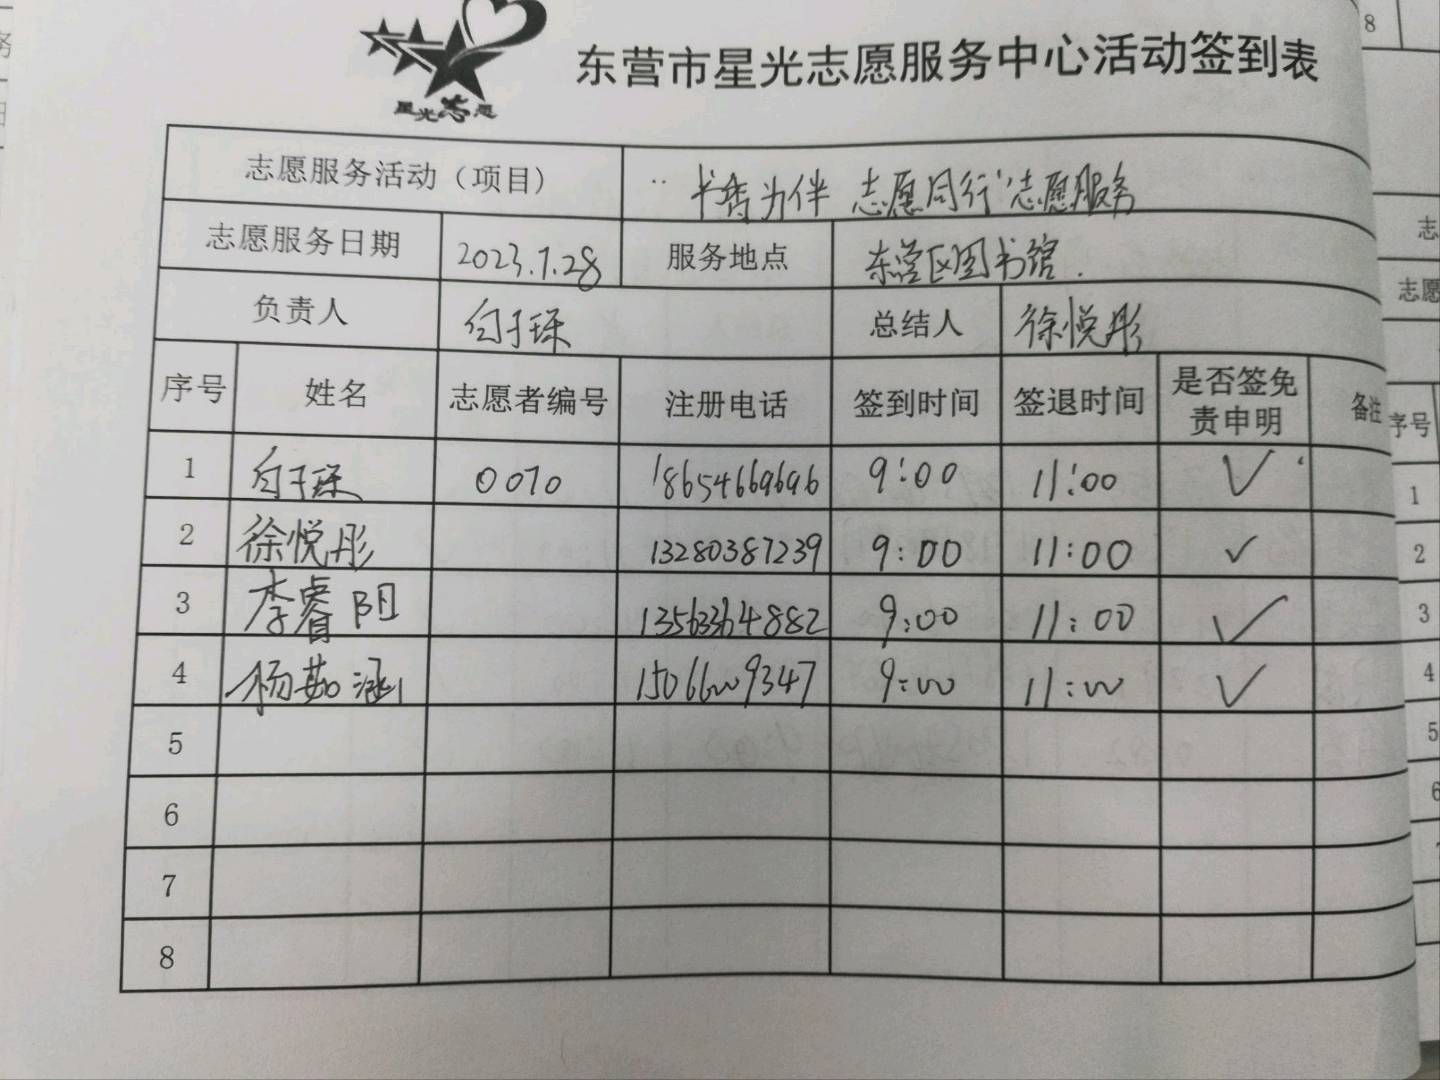 星光志愿
东营市星光志愿服务中心活动签到表
志愿服务活动（项目） "书香为伴 志愿同行"志愿服务
志愿服务日期 2023.7.28 服务地点 东营区图书馆.
负责人 白于琛 总结人 徐悦彤
序号 姓名 志愿者编号 注册电话 签到时间 签退时间 是否签免责申明 备注
1 白于琛 0070 18654669696 9:00 11:00 ✓
2 徐悦彤 13280387239 9:00 11:00 ✓
3 李睿阳 13563364882 9:00 11:00 ✓
4 杨茹涵 15066009347 9:00 11:00 ✓
5
6
7
8
8
志
志愿
序号
1
2
3
4
5
6